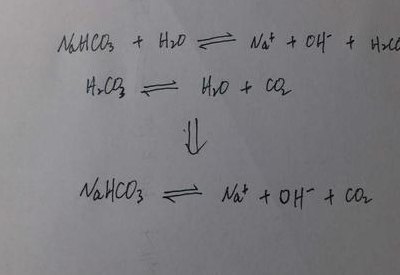 NaHCO₃ + H₂O ⇌ Na⁺ + OH⁻ + H₂CO
H₂CO₃ ⇌ H₂O + CO₂
⇓
NaHCO₃ ⇌ Na⁺ + OH⁻ + CO₂